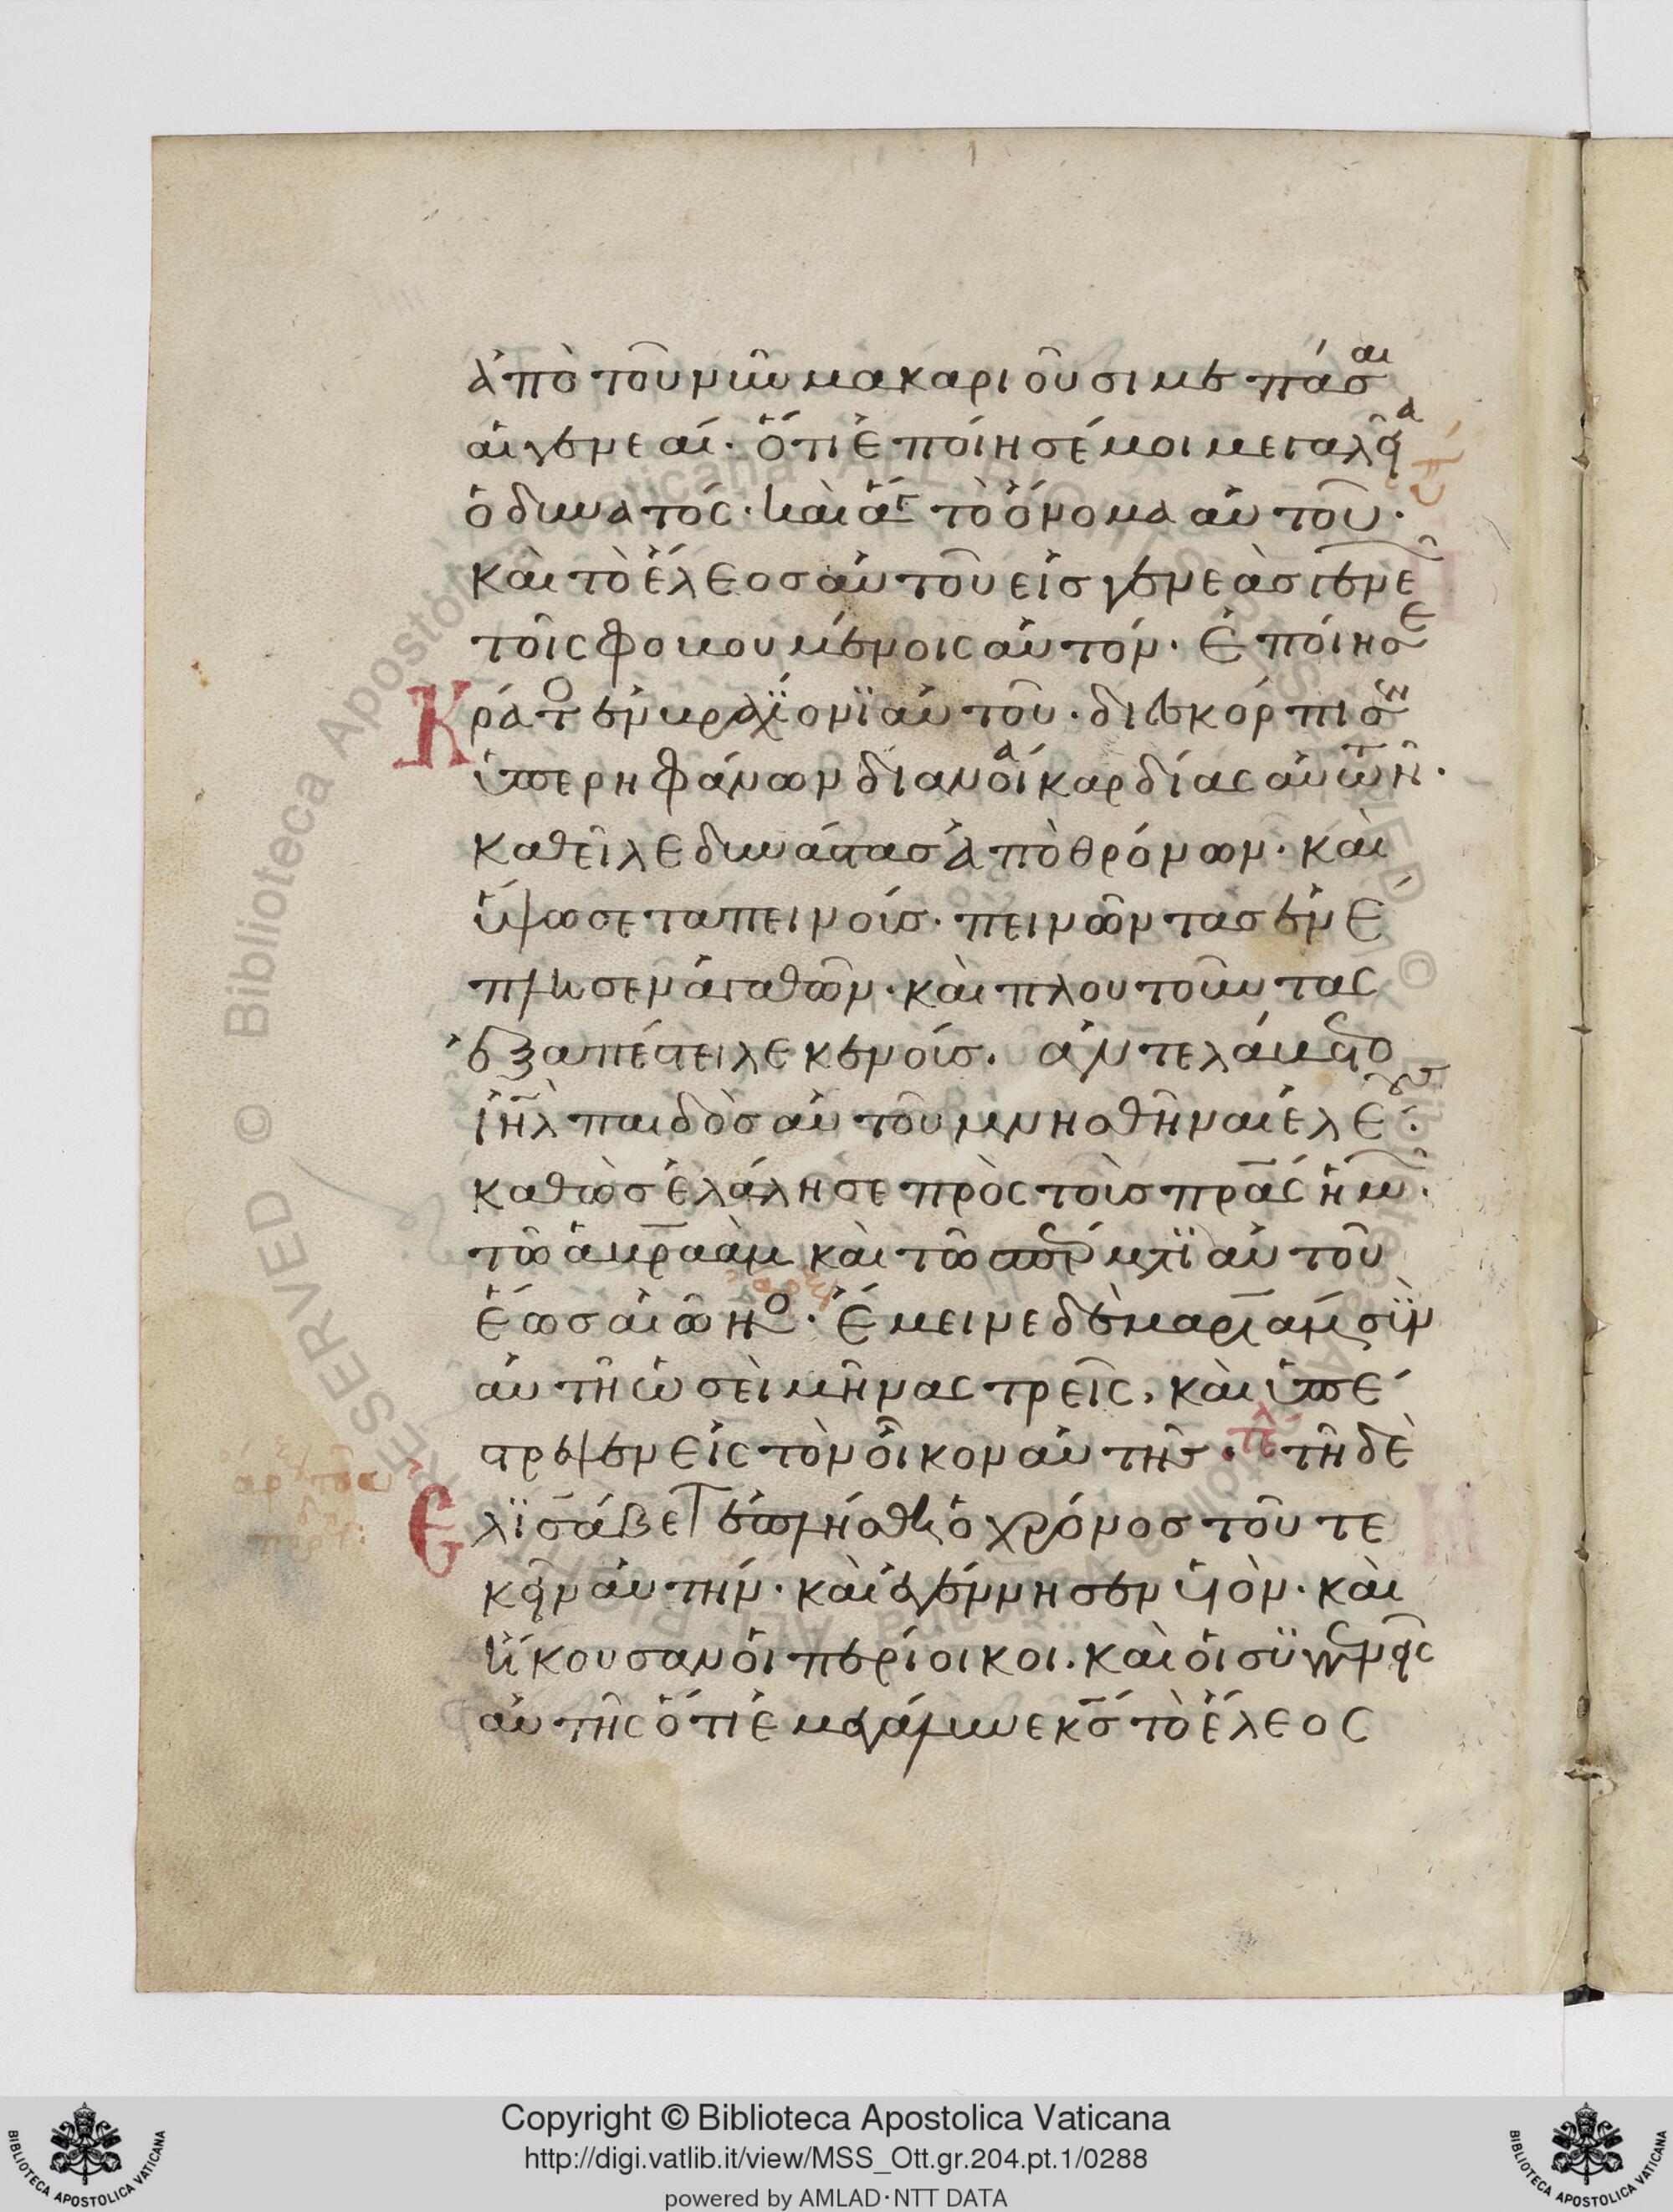 ἀπὸ τοῦ νῦν μακαριοῦσι με πᾶσαι
αἱ γενεαί· ὅτι ἐποίησέ μοι μεγαλεῖα
ὁ δυνατός· καὶ ἅγ τὸ ὄνομα αὐτοῦ·
καὶ τὸ ἔλεος αὐτοῦ εἰς γενεὰς γενε
τοῖς φοβουμένοις αὐτόν· Ἐποίησε
Κράτος ἐν βραχίονι αὐτοῦ· διεσκόρπισεν
ὑπερηφάνων διανοία καρδίας αὐτῶν·
καθεῖλε δυνάστας ἀπὸ θρόνων· καὶ
ὕψωσε ταπεινούς· πεινῶντας ἐνέ
πλησεν ἀγαθῶν· καὶ πλουτοῦντας
ἐξαπέστειλε κενούς· ἀντελάβετο
ἰῆλ παιδὸς αὐτοῦ μνησθῆναι ἐλέους·
καθὼς ἐλάλησε πρὸς τοὺς πρας ἡμῶν·
τῶ ἀβραὰμ καὶ τῶ σπέρματι αὐτοῦ
ἕως αἰῶνος· Ἔμεινε δὲ μαριὰμ σὺν
αὐτῆ ὡσεὶ μῆνας τρεῖς, καὶ ὑπέ
στρεψεν εἰς τὸν οἶκον αὐτῆς· τλ τῆ δὲ
Ἐλισάβετ ἐπλήσθη ὁ χρόνος τοῦ τε
κεῖν αὐτήν· καὶ ἐγέννησεν υἱὸν· καὶ
ἤκουσαν οἱ περίοικοι· καὶ οἱ συγγενεῖς
αὐτῆς ὅτι ἐμεγάλυνε κς τὸ ἔλεος
© Biblioteca Apostolica Vaticana ALL RIGHTS RESERVED
Copyright © Biblioteca Apostolica Vaticana
http://digi.vatlib.it/view/MSS_Ott.gr.204.pt.1/0288
powered by AMLAD·NTT DATA
BIBLIOTECA APOSTOLICA VATICANA
BIBLIOTECA APOSTOLICA VATICANA